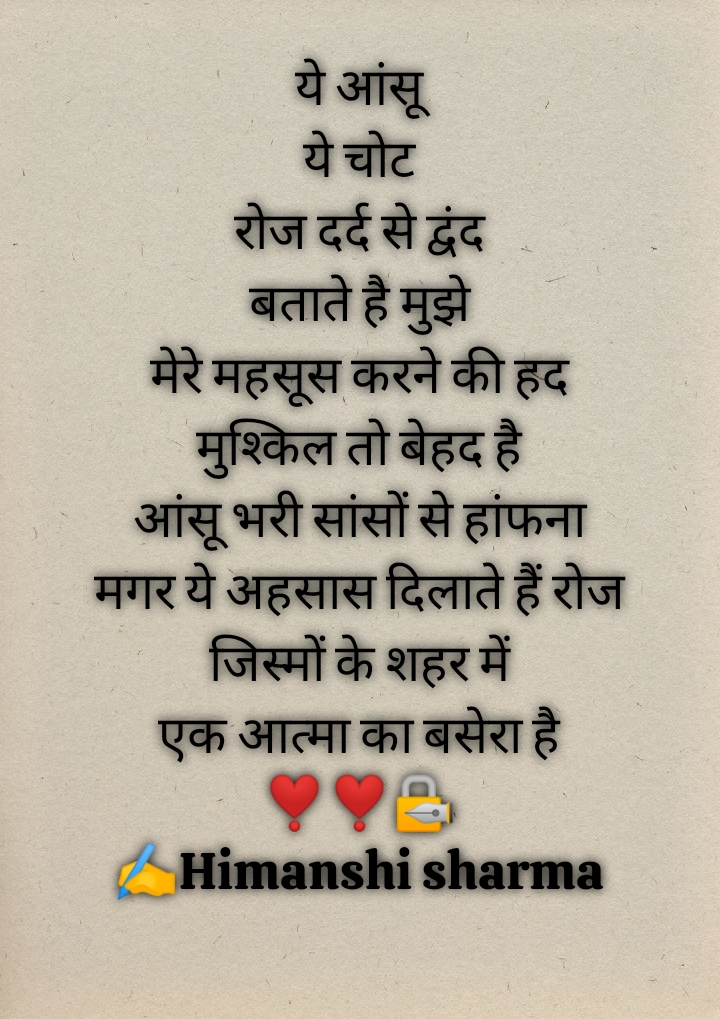 ये आंसू
ये चोट
रोज दर्द से द्वंद
बताते है मुझे
मेरे महसूस करने की हद
मुश्किल तो बेहद है
आंसू भरी सांसों से हांफना
मगर ये अहसास दिलाते हैं रोज
जिस्मों के शहर में
एक आत्मा का बसेरा है
❣️❣️🔏
✍️Himanshi sharma